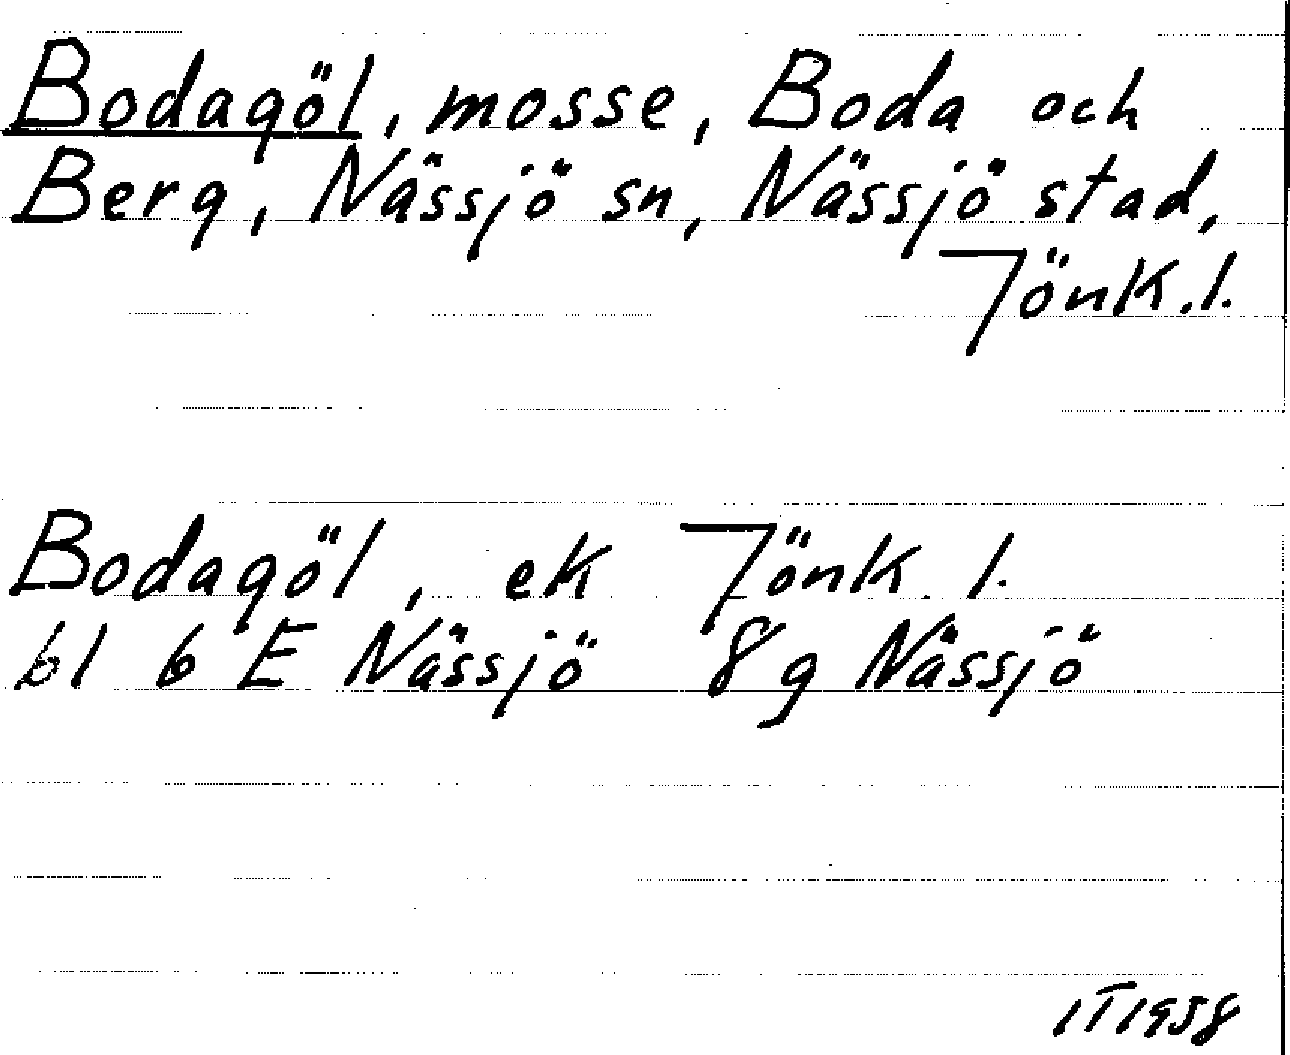 Bodagöl, mosse, Boda och
Berg, Nässjö sn, Nässjö stad,
Jönk.l.
Bodagöl, ek Jönk. l.
bl 6 E Nässjö 8g Nässjö
IT1958